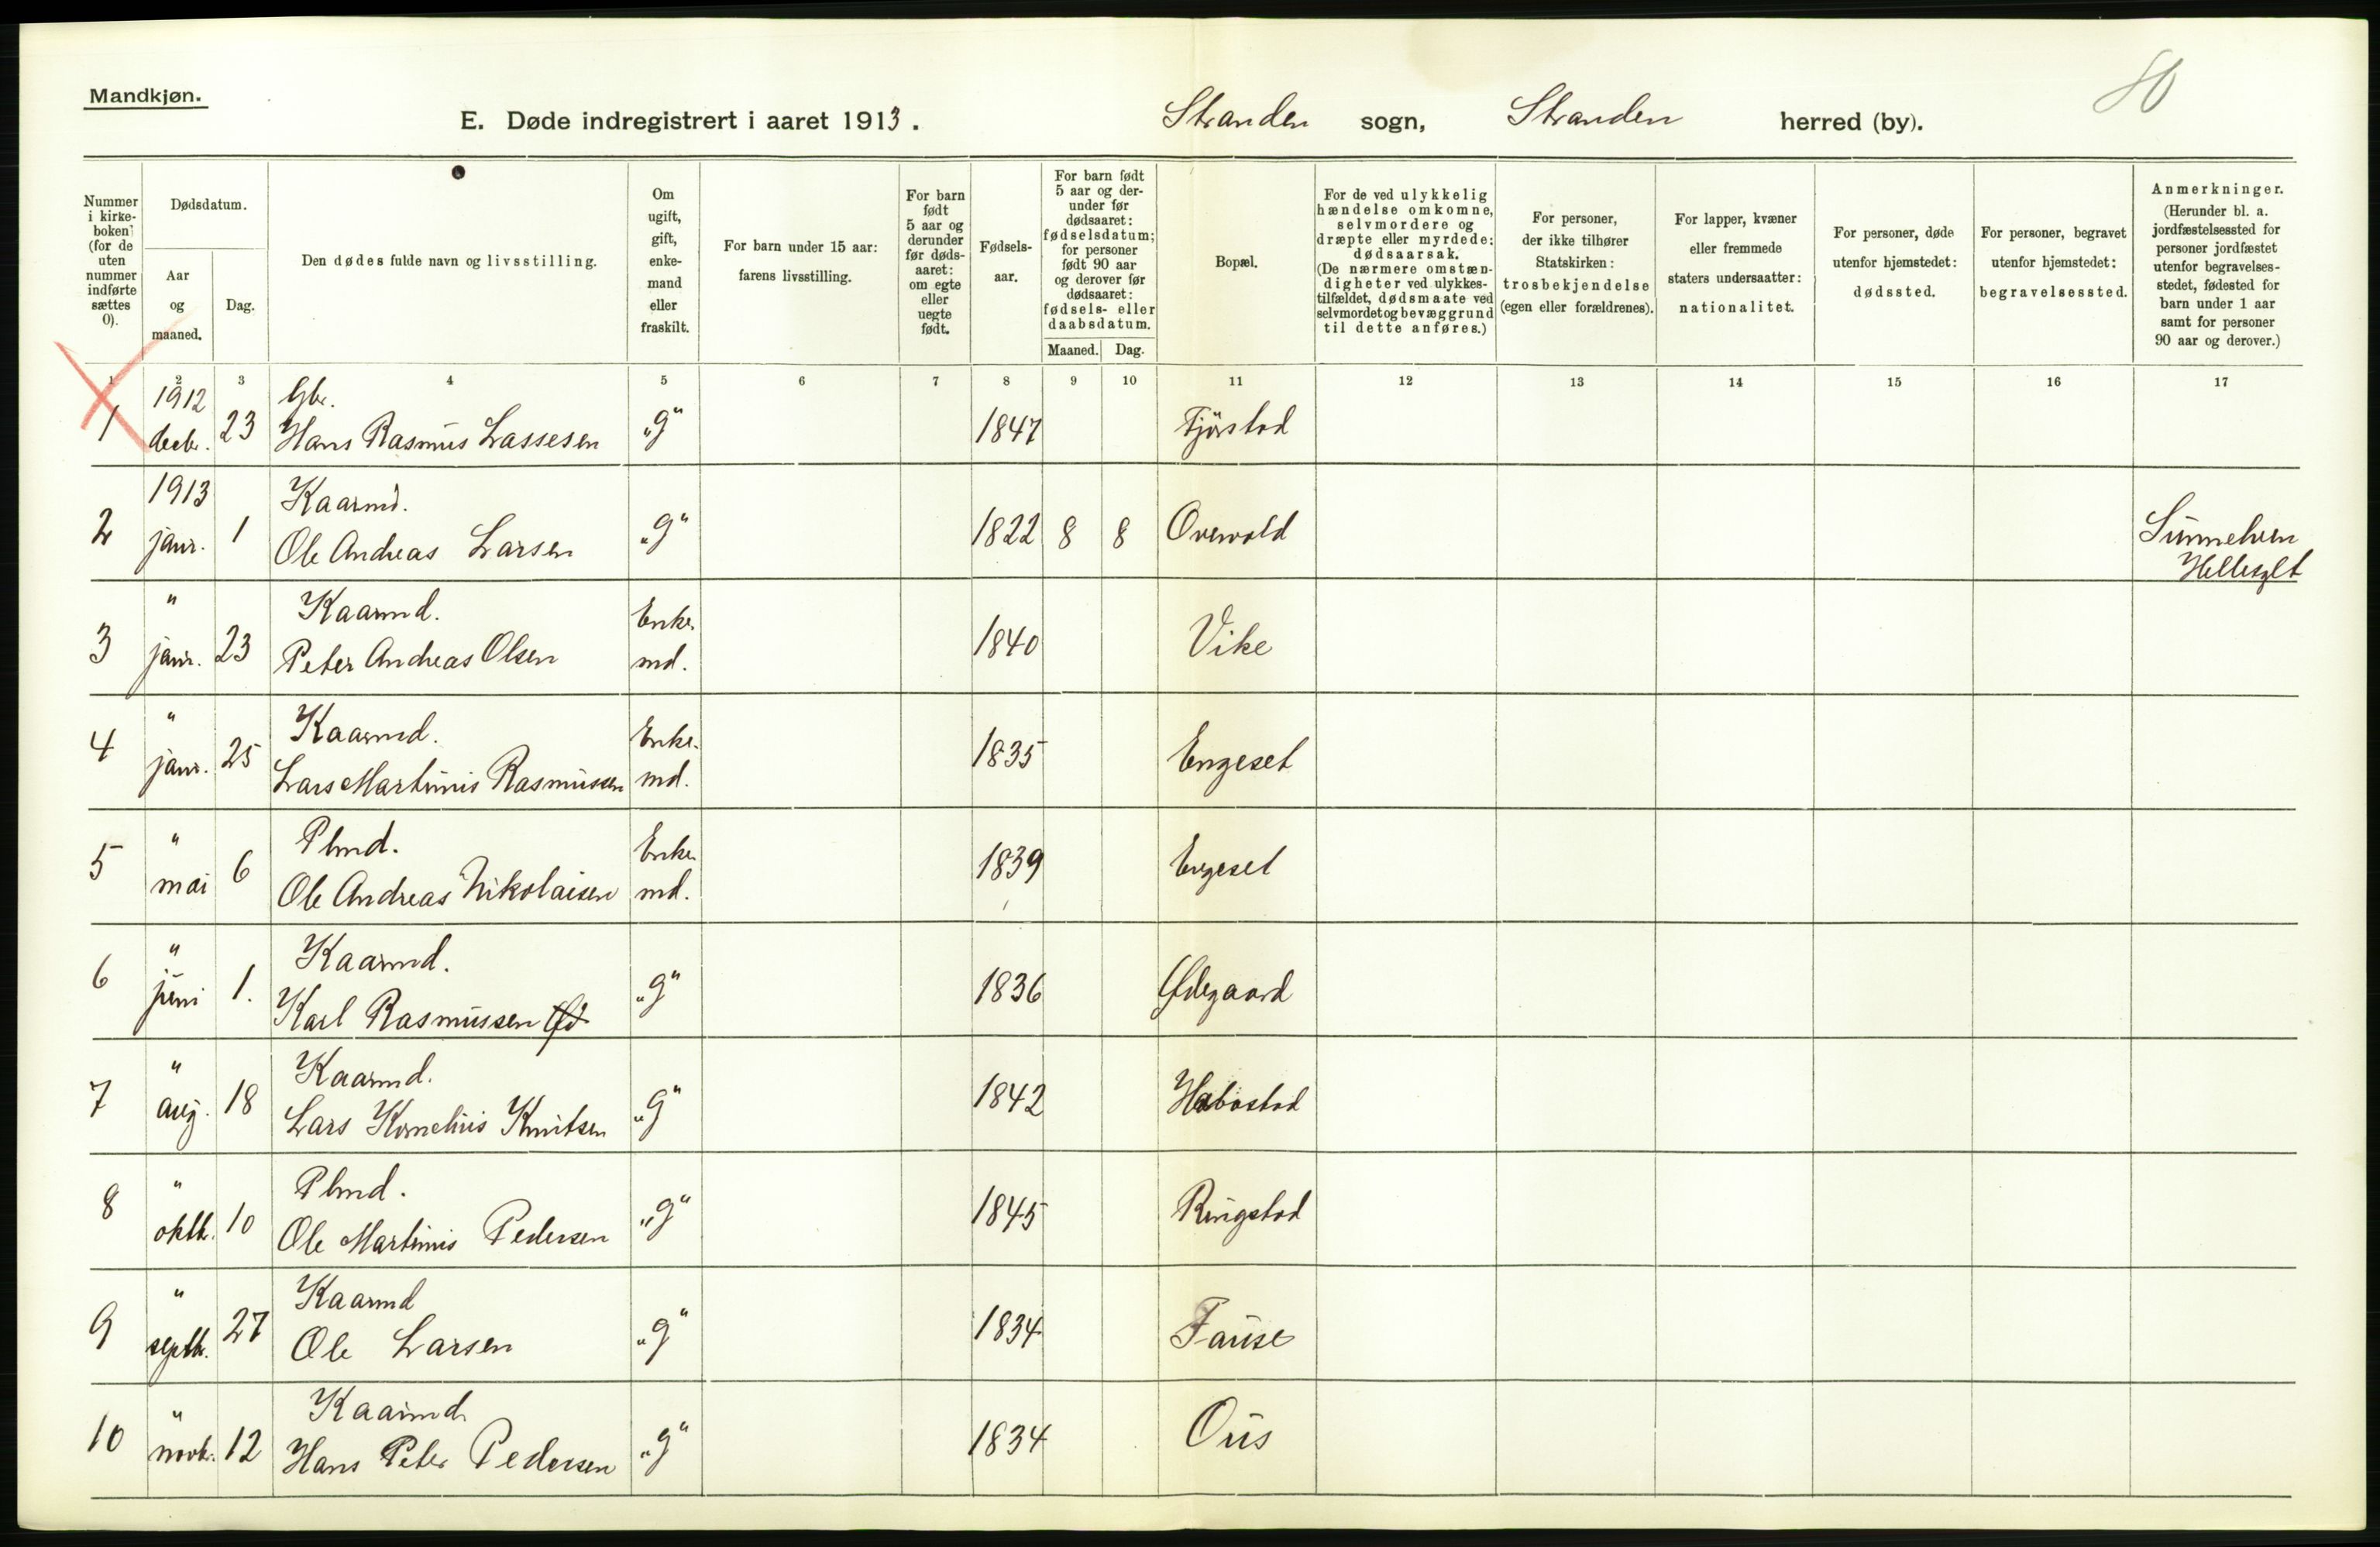 Mandkjøn.
80
E. Døde indregistrert i aaret 1913. Stranden sogn, Stranden herred (by).
Nummer i kirke-boken (for de uten nummer indførte sættes 0).
Dødsdatum.
Aar og maaned.
Dag.
Den dødes fulde navn og livsstilling.
Om ugift, gift, enke-mand eller fraskilt.
For barn under 15 aar: farens livsstilling.
For barn født 5 aar og derunder før døds-aaret: om egte eller uegte født.
Fødsels-aar.
For barn født 5 aar og der-under før dødsaaret: fødselsdatum; for personer født 90 aar og derover før dødsaaret: fødsels- eller daabsdatum.
Maaned. Dag.
Bopæl.
For de ved ulykkelig hændelse omkomne, selvmordere og dræpte eller myrdede: dødsaarsak. (De nærmere omstæn-digheter ved ulykkes-tilfældet, dødsmaate ved selvmordet og bevæggrund til dette anføres.)
For personer, der ikke tilhører Statskirken: trosbekjendelse (egen eller forældrenes).
For lapper, kvæner eller fremmede staters undersaatter: nationalitet.
For personer, døde utenfor hjemstedet: dødssted.
For personer, begravet utenfor hjemstedet: begravelsessted.
Anmerkninger. (Herunder bl. a. jordfæstelsessted for personer jordfæstet utenfor begravelses-stedet, fødested for barn under 1 aar samt for personer 90 aar og derover.)
1 2 3 4 5 6 7 8 9 10 11 12 13 14 15 16 17
1912 Gbr.
1 decbr. 23 Hans Rasmus Lassesen "g" 1847 Fjörstad
1913 Kaarmd.
2 janr. 1 Ole Andreas Larsen "g" 1822 8 8 Overvold Sunnelven
Hellesylt
" Kaarmd. Enke-
3 janr. 23 Peter Andreas Olsen md. 1840 Vike
" Kaarmd. Enke-
4 janr. 25 Lars Martinus Rasmussen md. 1835 Engeset
" Plmd. Enke-
5 mai 6 Ole Andreas Nikolaisen md. 1839 Engeset
" Kaarmd.
6 juni 1. Karl Rasmussen Ød "g" 1836 Ødegaard
" Kaarmd.
7 aug. 18 Lars Kornelius Knutsen "g" 1842 Habostad
" Plmd.
8 oktbr. 10 Ole Martinus Pedersen "g" 1845 Ringstad
" Kaarmd
9 septbr. 27 Ole Larsen "g" 1834 Fause
" Kaarmd.
10 novbr. 12 Hans Peter Pedersen "g" 1834 Ous